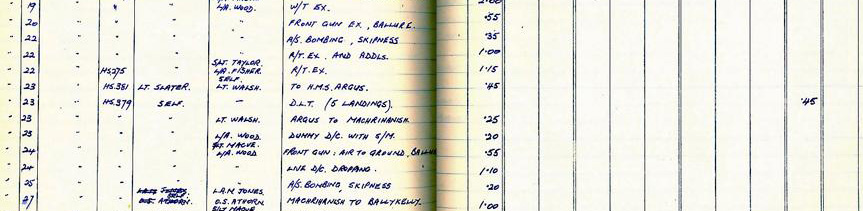 19 " " L/A. WOOD. W/T EX. 2.00
20 " " " FRONT GUN EX, BALLURE. .55
22 " " " A/S. BOMBING, SKIPNESS .35
22 " " S/LT. TAYLOR. R/T. EX. AND ADDLS. 1.00
22 HS.275 " L/A. FISHER. R/T. EX. 1.15
SELF.
23 HS.381 LT. SLATER. LT. WALSH. TO H.M.S. ARGUS. .45
23 HS.379 SELF. — D.L.T. (5 LANDINGS). .45
23 " " LT. WALSH. ARGUS TO MACHRIHANISH. .25
23 " " L/A. WOOD. DUMMY D/C. WITH S/M. .20
24 " " L/A. WOOD FRONT GUN: AIR TO GROUND, .55
24 " " " LIVE D/C. DROPPING. 1.10
25 " " " A/S. BOMBING, SKIPNESS .20
SELF. L.A.M. JONES.
27 " O.S. ATHORN. MACHRIHANISH TO BALLYKELLY. 1.00